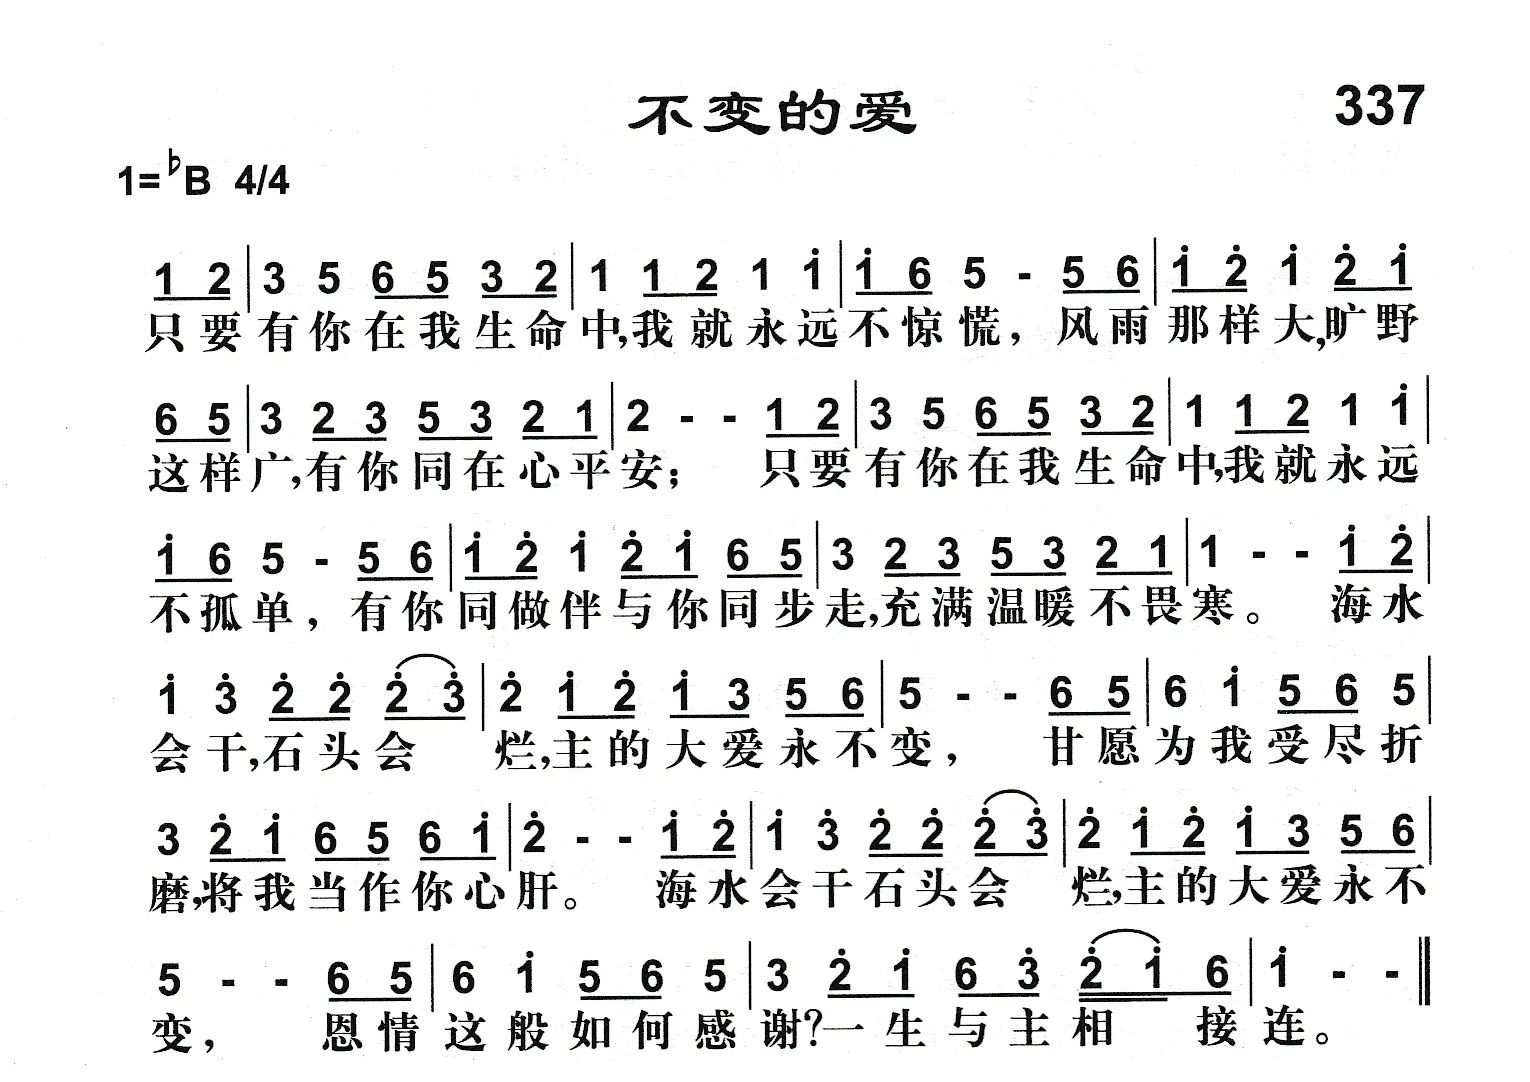 不变的爱 337
1=♭B 4/4
1 2 | 3 5 6 5 3 2 | 1 1 2 1 i | i 6 5 - 5 6 | i 2̇ i 2̇ i
只要有你在我生命中,我就永远不惊慌，风雨那样大,旷野
6 5 | 3 2 3 5 3 2 1 | 2 - - 1 2 | 3 5 6 5 3 2 | 1 1 2 1 i |
这样广,有你同在心平安； 只要有你在我生命中,我就永远
i 6 5 - 5 6 | i 2̇ i 2̇ i 6 5 | 3 2 3 5 3 2 1 | 1 - - i 2̇ |
不孤单，有你同做伴与你同步走,充满温暖不畏寒。 海水
i 3̇ 2̇ 2̇ 2̇ 3̇ | 2̇ i 2̇ i 3 5 6 | 5 - - 6 5 | 6 i 5 6 5 |
会干,石头会 烂,主的大爱永不变， 甘愿为我受尽折
3 2̇ i 6 5 6 i | 2̇ - - i 2̇ | i 3̇ 2̇ 2̇ 2̇ 3̇ | 2̇ i 2̇ i 3 5 6 |
磨,将我当作你心肝。 海水会干石头会 烂,主的大爱永不
5 - - 6 5 | 6 i 5 6 5 | 3 2̇ i 6 3̇ 2̇ i 6 | i - - ‖
变， 恩情这般如何感谢?一生与主相 接连。